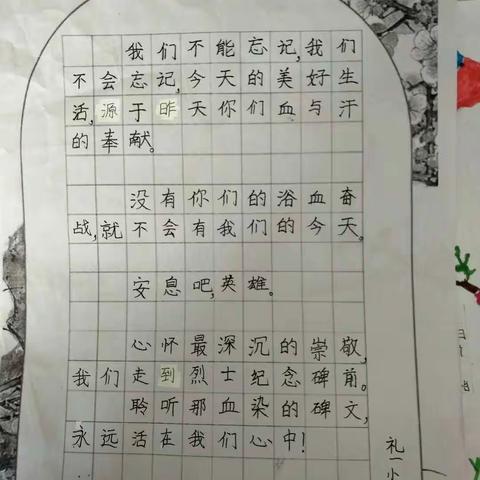 我们不能忘记,我们
不会忘记,今天的美好生
活,源于昨天你们血与汗
的奉献。
没有你们的浴血奋
战,就不会有我们的今天。
安息吧,英雄。
心怀最深沉的崇敬,
我们走到烈士纪念碑前。
聆听那血染的碑文,
永远活在我们心中!
礼一小